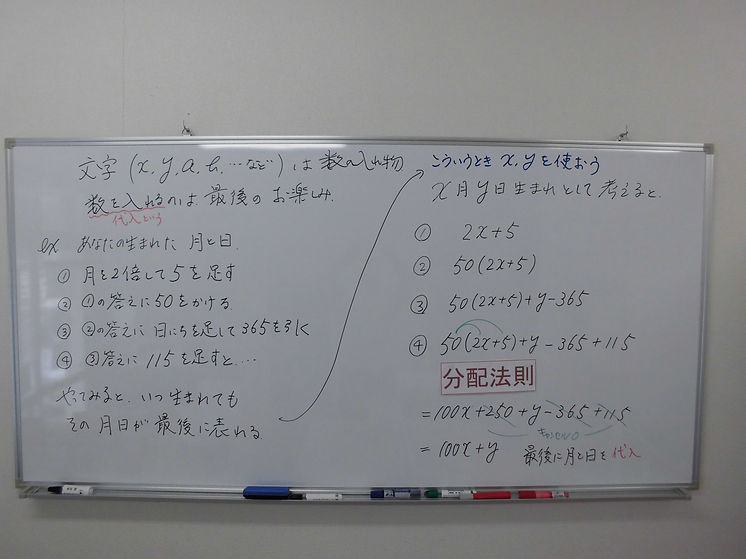 文字(x,y,a,b,…など)は数の入れ物
数を入れるのは最後のお楽しみ.
代入という
ex あなたの生まれた 月と日.
① 月を2倍して5を足す
② ①の答えに50をかける.
③ ②の答えに 日にちを足して365を引く
④ ③答えに 115を足すと….
やってみると、いつ生まれても
その月日が最後に表れる.
こういうとき x,yを使おう
x月y日生まれとして考えると.
① 2x+5
② 50(2x+5)
③ 50(2x+5)+y-365
④ 50(2x+5)+y-365+115
分配法則
=100x+250+y-365+115
キャンセル0
=100x+y 最後に月と日を代入